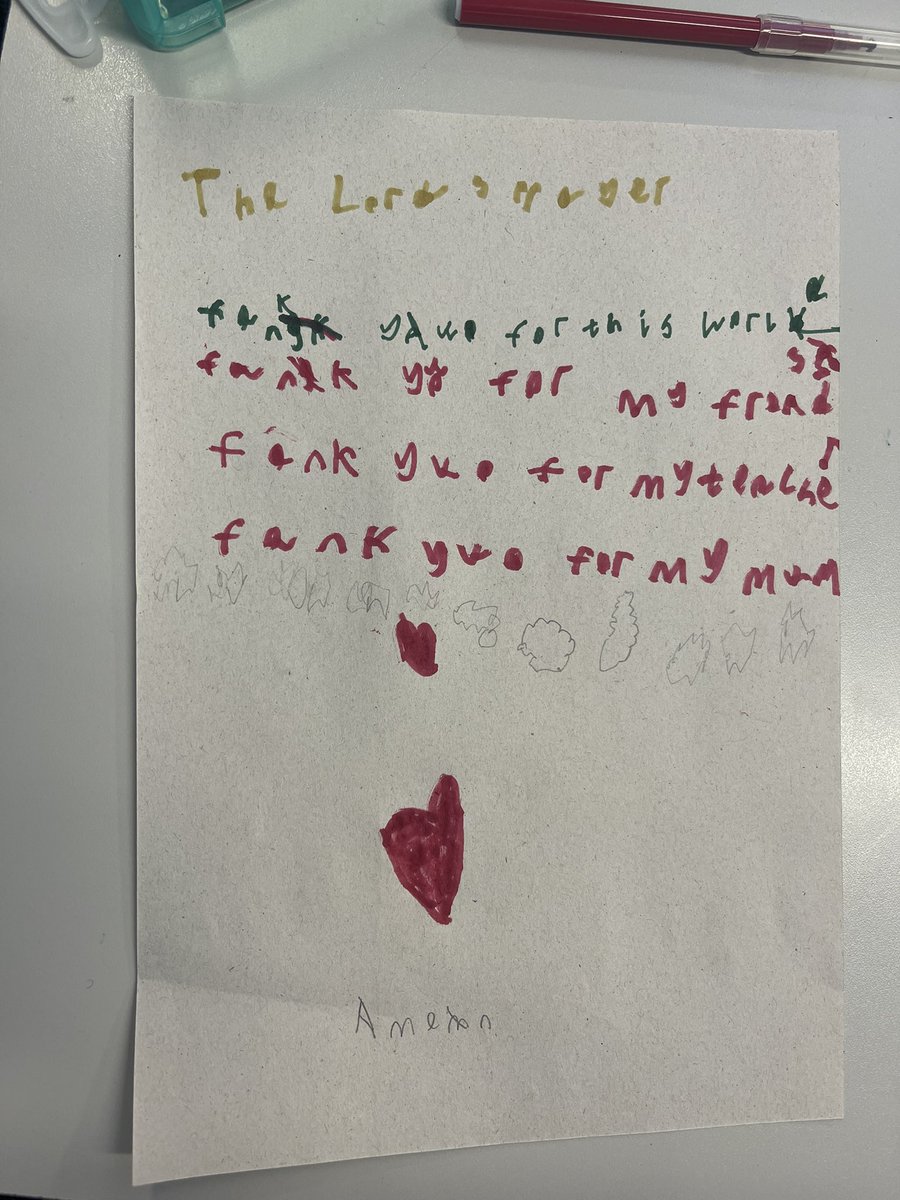 The Lord's Prayer
fank yuo for this worl
fank yo for my frends
fank yuo for my teacher
fank yuo for my mum
Amen